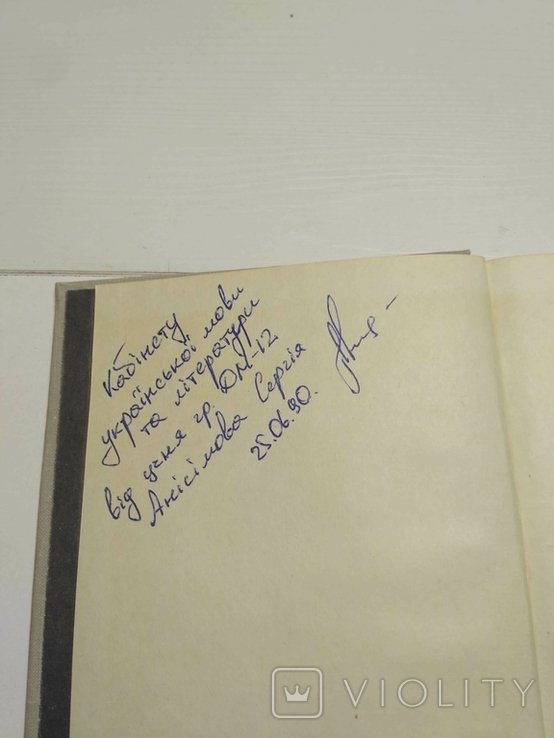 Кабінету
української мови
та літератури
від учня гр. ДМ-12
Анісімова Сергія
25.06.90.
VIOLITY